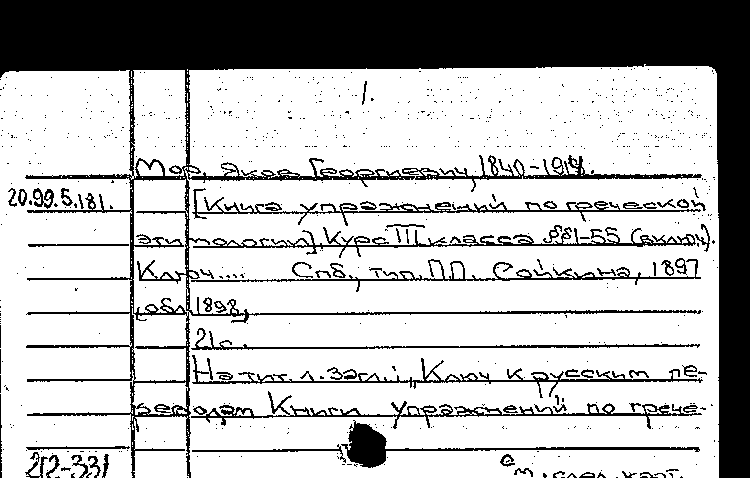 1.
Мор, Яков Георгиевич, 1840-1919.
20.99.5.181.
[Книга упражнений по греческой
этимологии], Курс III класса §§1-55 (включ).
Ключ.... Спб., тип. П.П. Сойкина, 1897
[обл. 1898],
21с.
На тит. л. загл.: „Ключ к русским пе-
реводам Книги упражнений по грече-
212-331
См. след. карт.